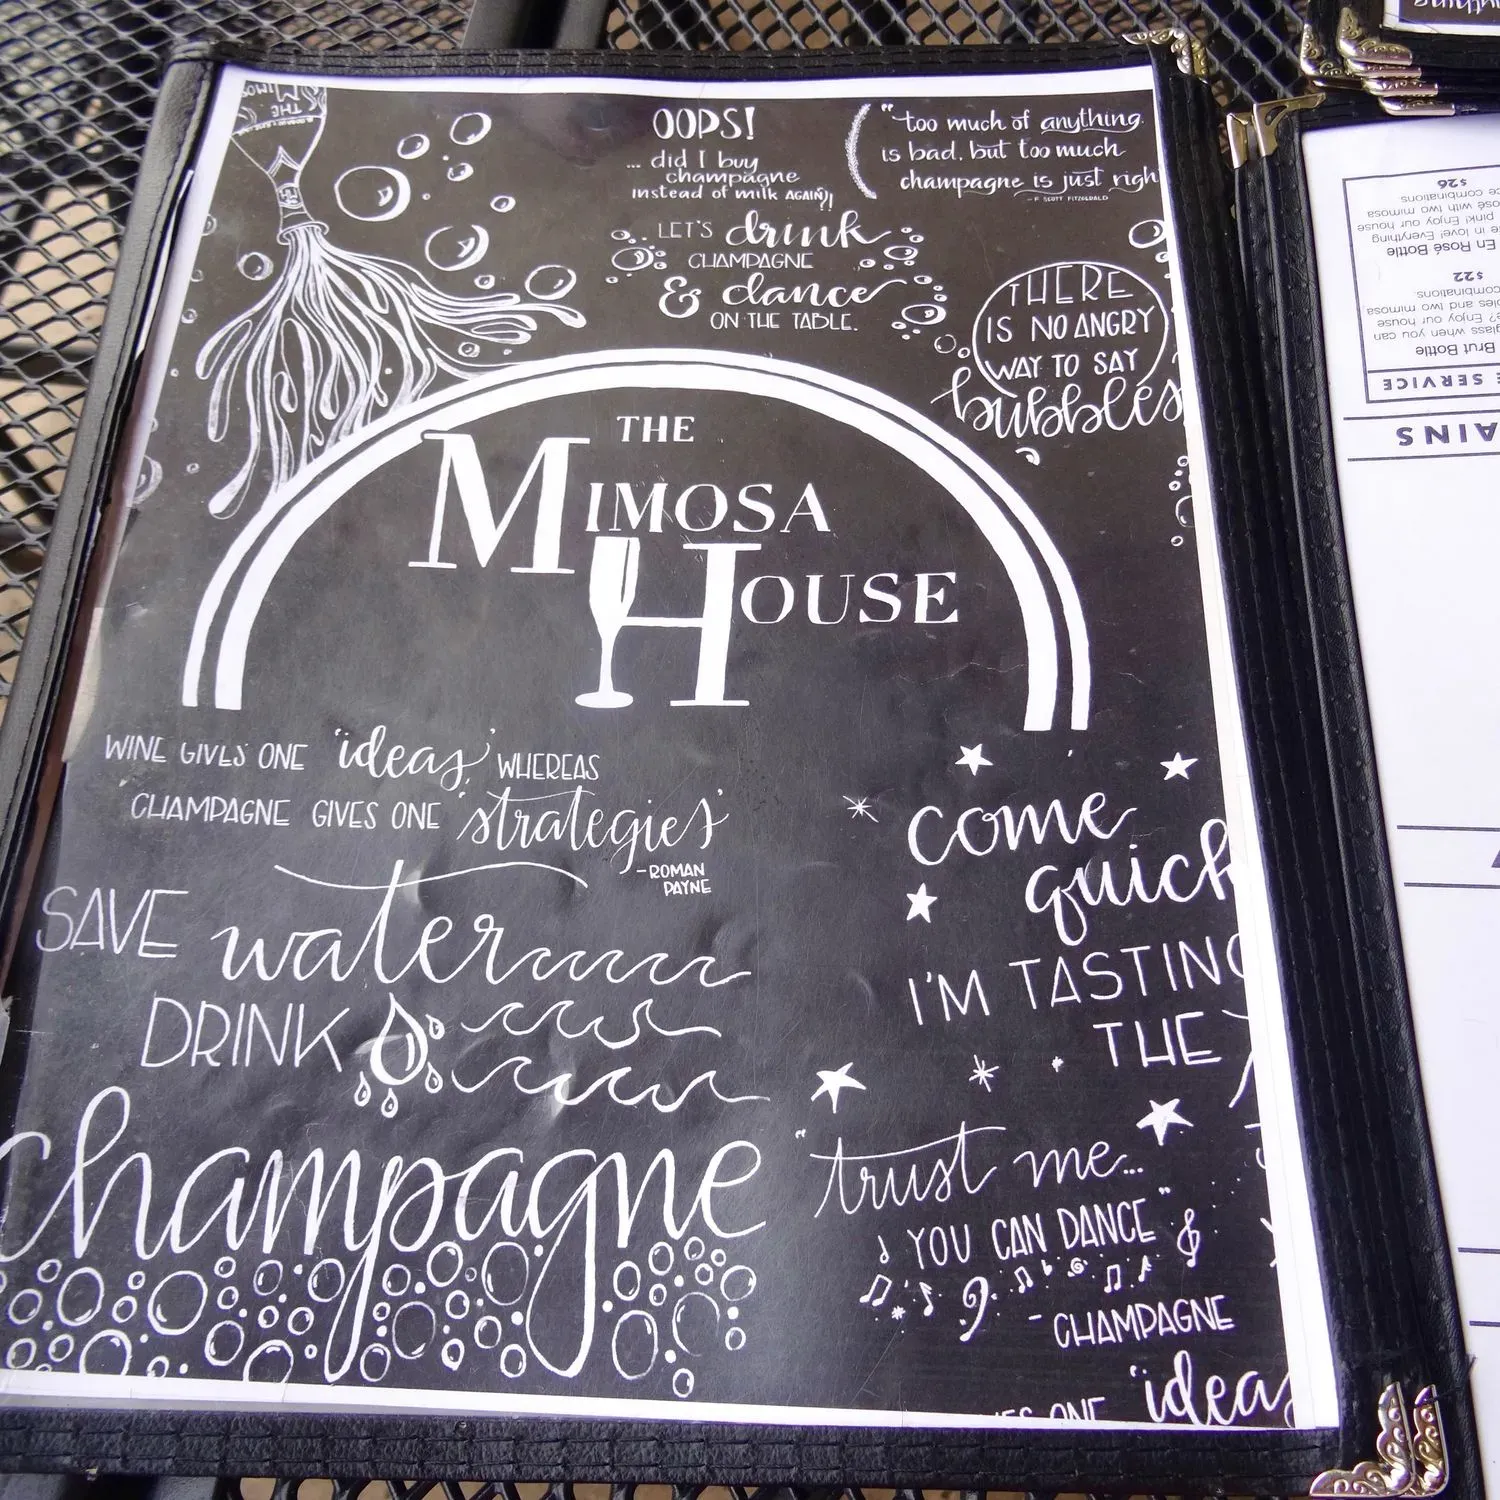 OOPS!
... did I buy
champagne
instead of milk AGAIN?!
"too much of anything
is bad, but too much
champagne is just righ
- F. SCOTT FITZGERALD
LET'S drink
CHAMPAGNE
& dance
ON THE TABLE.
THERE
IS NO ANGRY
WAY TO SAY
bubbles
THE
MIMOSA
HOUSE
WINE GIVES ONE 'ideas,' WHEREAS
CHAMPAGNE GIVES ONE 'strategies'
-ROMAN
PAYNE
SAVE water
DRINK
champagne
come
quick
I'M TASTING
THE
"trust me...
YOU CAN DANCE"
- CHAMPAGNE
ES ONE 'ideas
THE
MIMOS
ything
SERVICE
Brut Bottle
glass when you can
? Enjoy our house
les and two mimosa
combinations.
$22
En Rosé Bottle
e in love! Everything
pink! Enjoy our house
osé with two mimosa
combinations.
$26
AINS